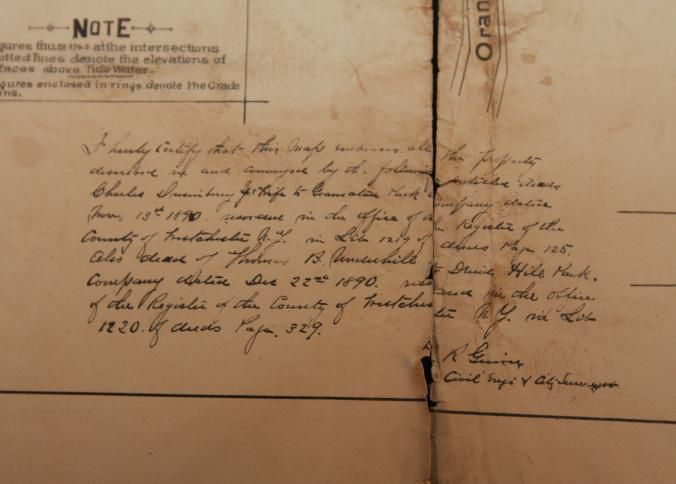 NOTE
gures thus 8765 at the intersections
otted lines denote the elevations of
faces above Tide Water.
gures enclosed in rings denote the Grade
ons.
Oran
I hereby Certify that this Map embraces all the property
described in and conveyed by the following deeds
Charles Dusenbury & Wife to Gramatan Park Company dated
Nov. 13th 1890. recorded in the office of the Register of the
County of Westchester N.Y. in Lib 1219 of deeds Page 125.
Also deed of Thomas B. Underhill to Hill Park.
Company dated Dec 22nd 1890. recorded in the office
of the Register of the County of Westchester N.Y. in Lib
1220. of deeds Page. 329.
R
Civil Engr & City Surveyor